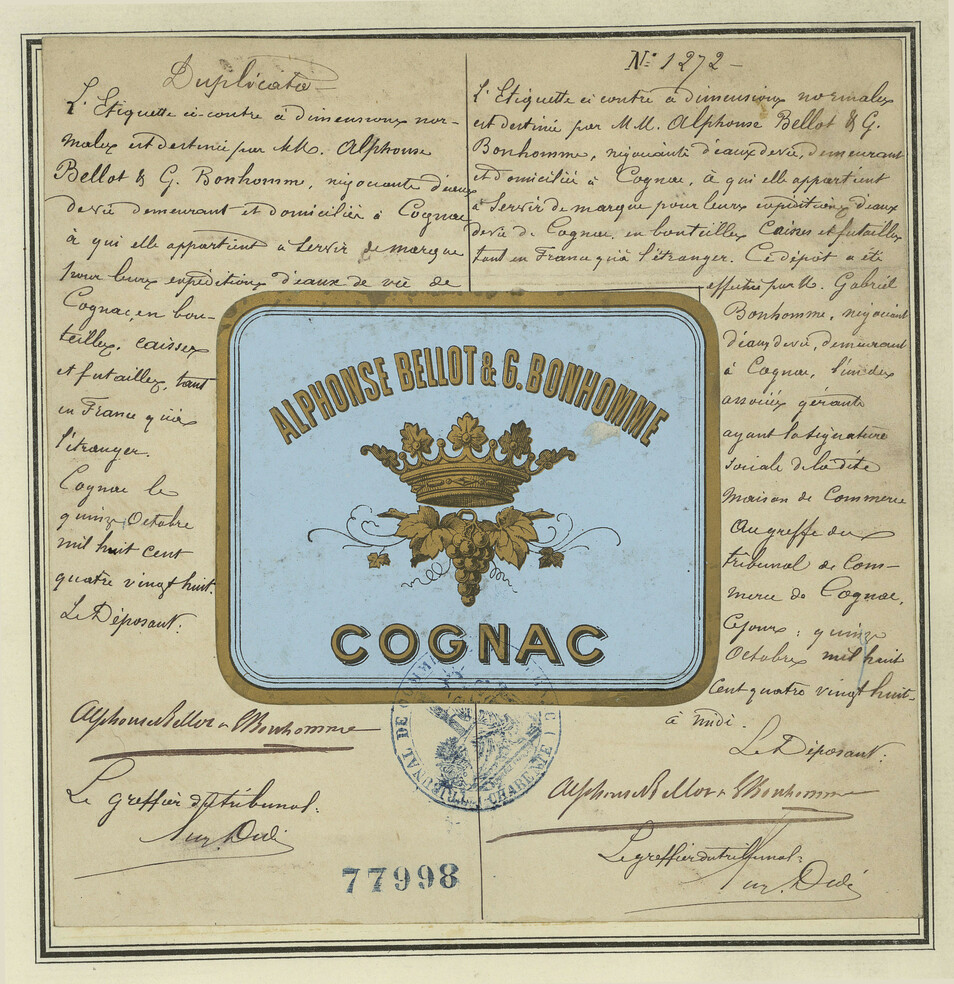 Duplicata
L'Etiquette ci-contre à dimensions nor-
males est destinée par MM. Alphonse
Bellot & G. Bonhomme, négociants d'eaux
de vie demeurant et domiciliés à Cognac
à qui elle appartient à servir de marque
pour leurs expéditions d'eaux de vie de
Cognac, en bou-
teilles, caisses
et futailles, tant
en France qu'à
l'étranger.
Cognac le
quinze Octobre
mil huit cent
quatre vingt huit.
Le Déposant.
Alphonse Bellot & G Bonhomme
Le greffier du tribunal.
N° 1272
L'Etiquette ci contre à dimensions normales
est destinée par MM. Alphonse Bellot & G.
Bonhomme, négociants d'eaux de vie, demeurant
et domiciliés à Cognac, à qui elle appartient
à servir de marque pour leurs expéditions d'eaux
de vie de Cognac. en bouteilles caisses et futailles
tant en France qu'à l'étranger. Ce dépôt a été
effectué par M. Gabriel
Bonhomme, négociant
d'eaux de vie, demeurant
à Cognac, l'un des
associés gérants
ayant la signature
sociale de la dite
Maison de Commerce
Au greffe du
tribunal de Com-
merce de Cognac,
Ce jour : quinze
Octobre mil huit
cent quatre vingt huit
à midi.
Le Déposant.
Alphonse Bellot & G Bonhomme
Le greffier du tribunal.
ALPHONSE BELLOT & G. BONHOMME
COGNAC
TRIBUNAL DE COMM
CHARENTE
77998